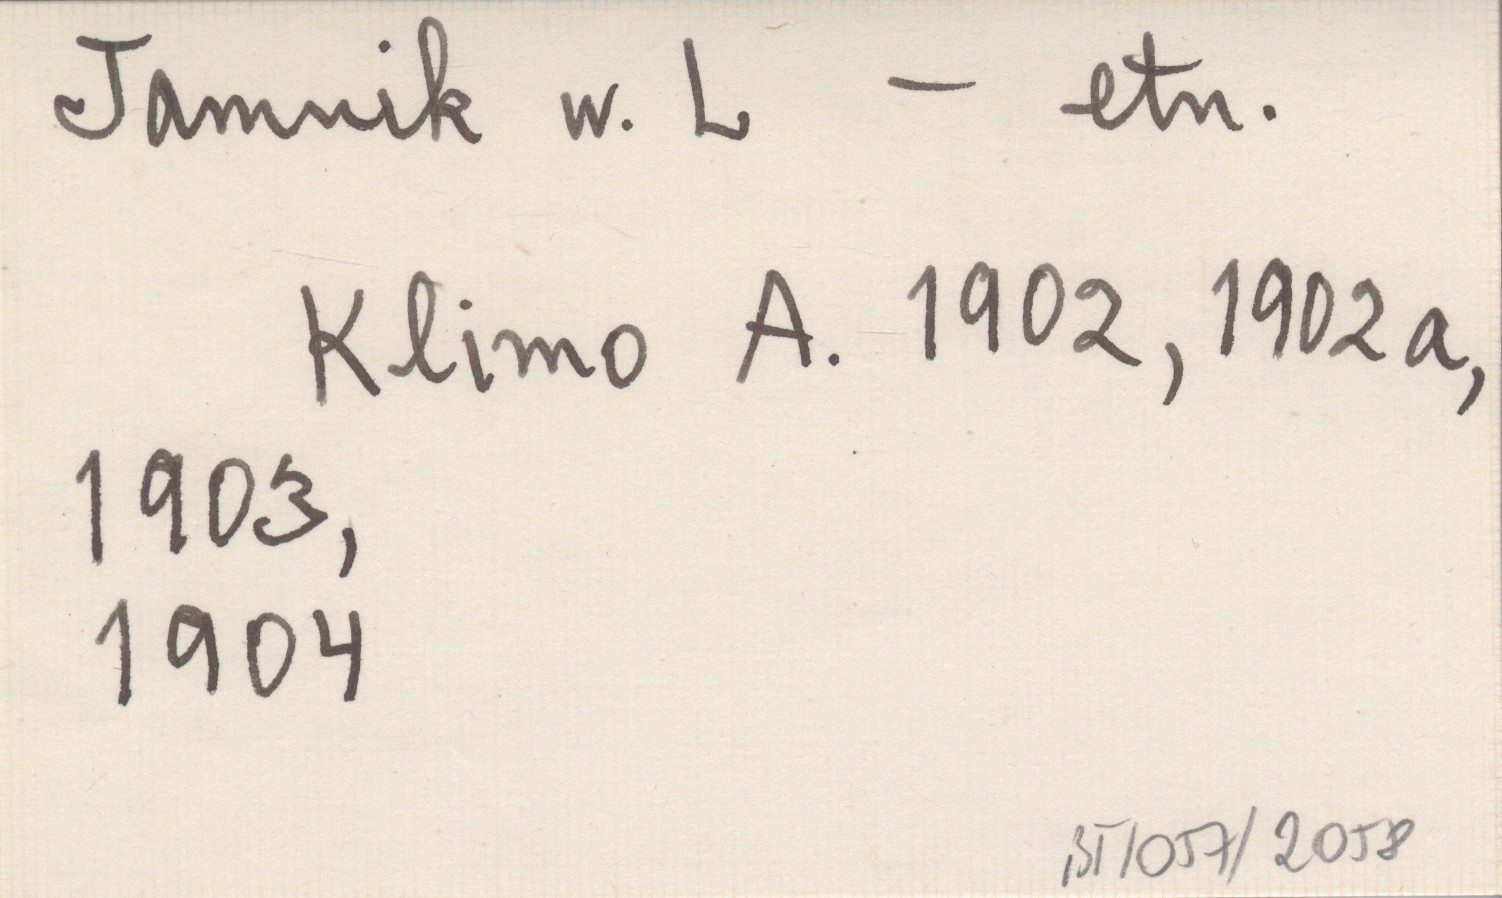 Jamnik w. L — etn.
Klimo A. 1902, 1902a,
1903,
1904
BI/057/2058